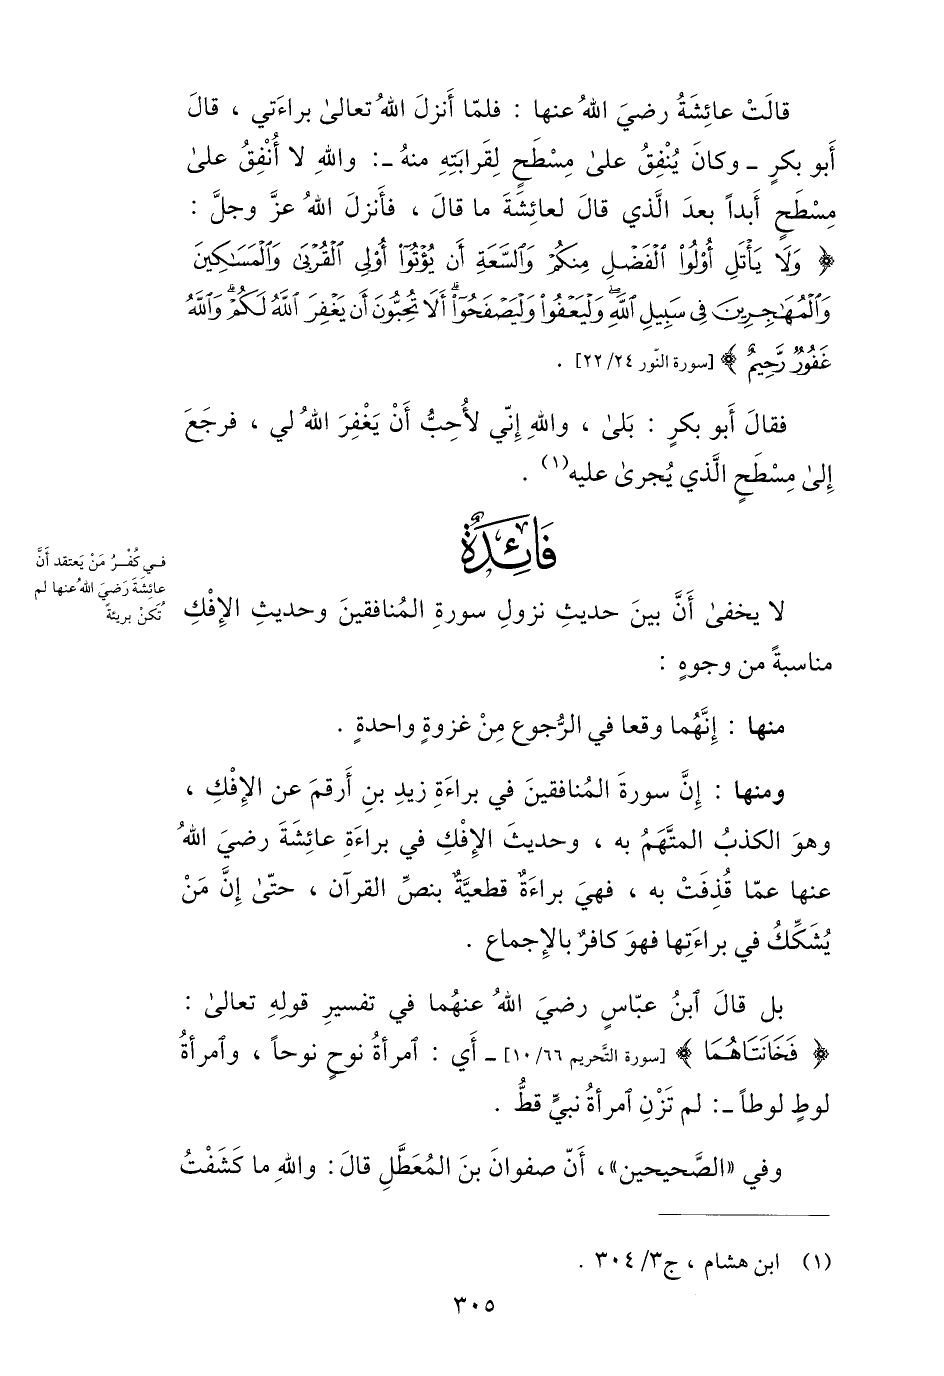 قالَتْ عائِشَةُ رضيَ اللهُ عنها : فلمّا أَنزلَ اللهُ تعالىٰ براءَتي ، قالَ
أَبو بكرٍ ـ وكانَ يُنْفِقُ علىٰ مِسْطَحٍ لِقَرابَتِهِ منهُ ـ: واللهِ لا أُنْفِقُ علىٰ
مِسْطَحٍ أَبداً بعدَ الَّذي قالَ لعائِشَةَ ما قالَ ، فأَنزلَ اللهُ عزَّ وجلَّ :
﴿ وَلَا يَأْتَلِ أُوْلُواْ ٱلْفَضْلِ مِنكُمْ وَٱلسَّعَةِ أَن يُؤْتُوٓاْ أُوْلِى ٱلْقُرْبَىٰ وَٱلْمَسَٰكِينَ
وَٱلْمُهَٰجِرِينَ فِى سَبِيلِ ٱللَّهِۖ وَلْيَعْفُواْ وَلْيَصْفَحُوٓاْۗ أَلَا تُحِبُّونَ أَن يَغْفِرَ ٱللَّهُ لَكُمْۗ وَٱللَّهُ
غَفُورٌ رَّحِيمٌ ﴾ [سورة النّور ٢٤/ ٢٢] .
فقالَ أَبو بكرٍ : بَلىٰ ، واللهِ إِنّي لأُحِبُّ أَنْ يَغْفِرَ اللهُ لي ، فرجَعَ
إِلىٰ مِسْطَحٍ الَّذي يُجرىٰ عليه(١) .
فَائِدَةٌ
في كُفْرُ مَنْ يَعتقد أَنَّ
عائِشَةَ رَضيَ اللهُ عنها لم
تَكنْ بريئةً
لا يخفىٰ أَنَّ بينَ حديثِ نزولِ سورةِ المُنافقينَ وحديثِ الإِفْكِ
مناسبةً من وجوهٍ :
منها : إِنَّهُما وقعا في الرُّجوع مِنْ غزوةٍ واحدةٍ .
ومنها : إِنَّ سورةَ المُنافقينَ في براءَةِ زيدِ بنِ أَرقمَ عن الإِفْكِ ،
وهوَ الكذبُ المتَّهَمُ به ، وحديثَ الإِفْكِ في براءَةِ عائِشَةَ رضيَ اللهُ
عنها عمّا قُذِفَتْ به ، فهيَ براءَةٌ قطعيَّةٌ بنصِّ القرآن ، حتّىٰ إِنَّ مَنْ
يُشَكِّكُ في براءَتِها فهوَ كافرٌ بالإِجماع .
بل قالَ ٱبنُ عبّاسٍ رضيَ اللهُ عنهُما في تفسيرِ قولِهِ تعالىٰ :
﴿ فَخَانَتَاهُمَا ﴾ [سورة التَّحريم ٦٦/ ١٠] ـ أَي : ٱمرأةُ نوحٍ نوحاً ، وٱمرأةُ
لوطٍ لوطاً ـ: لم تَزْنِ ٱمرأةُ نبيٍّ قطُّ .
وفي «الصَّحيحين» ، أَنّ صفوانَ بنَ المُعَطَّلِ قالَ : واللهِ ما كَشَفْتُ
(١) ابن هشام ، ج٣/ ٣٠٤ .
٣٠٥